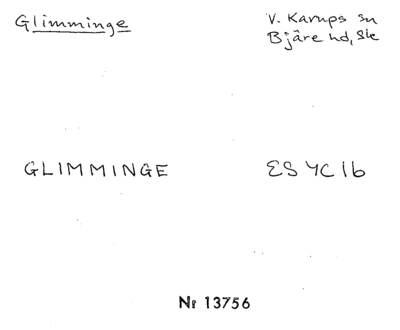 Glimminge
V. Karups sn
Bjäre hd, Sk
GLIMMINGE
ES 4C 1b
Nr 13756